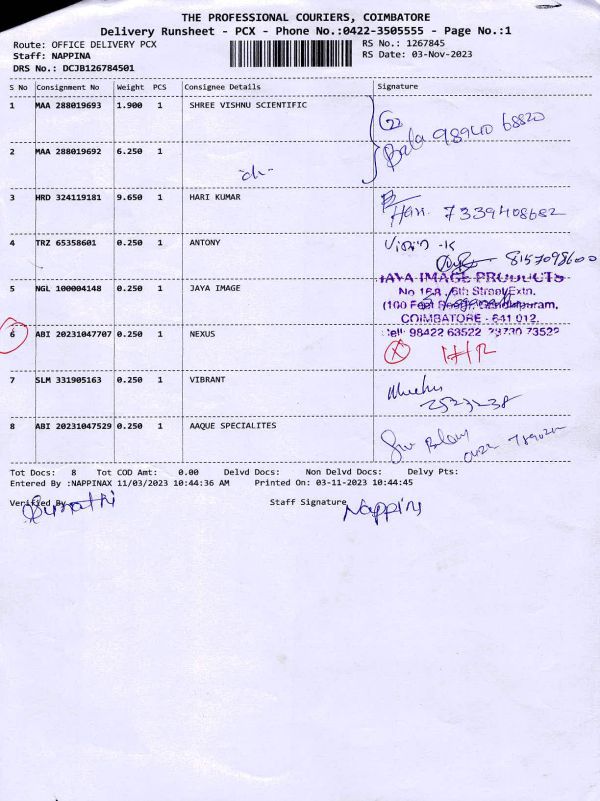 THE PROFESSIONAL COURIERS, COIMBATORE
Delivery Runsheet - PCX - Phone No.:0422-3505555 - Page No.:1
Route: OFFICE DELIVERY PCX
Staff: NAPPINA
DRS No.: DCJB126784501
RS No.: 1267845
RS Date: 03-Nov-2023
S No Consignment No Weight PCS Consignee Details Signature
1 MAA 288019693 1.900 1 SHREE VISHNU SCIENTIFIC
Bala 98940 68820
2 MAA 288019692 6.250 1
3 HRD 324119181 9.650 1 HARI KUMAR
Hari. 7339408682
4 TRZ 65358601 0.250 1 ANTONY
8157098600
5 NGL 100004148 0.250 1 JAYA IMAGE
JAYA IMAGE PRODUCTS
No 16A, 6th Street Extn,
(100 Feet Road), Gandhipuram,
COIMBATORE - 641 012.
Cell: 98422 63522
6 ABI 20231047707 0.250 1 NEXUS
7 SLM 331905163 0.250 1 VIBRANT
2523238
8 ABI 20231047529 0.250 1 AAQUE SPECIALITES
Tot Docs: 8 Tot COD Amt: 0.00 Delvd Docs: Non Delvd Docs: Delvy Pts:
Entered By :NAPPINAX 11/03/2023 10:44:36 AM Printed On: 03-11-2023 10:44:45
Verified By Staff Signature
Sumathi Nappins